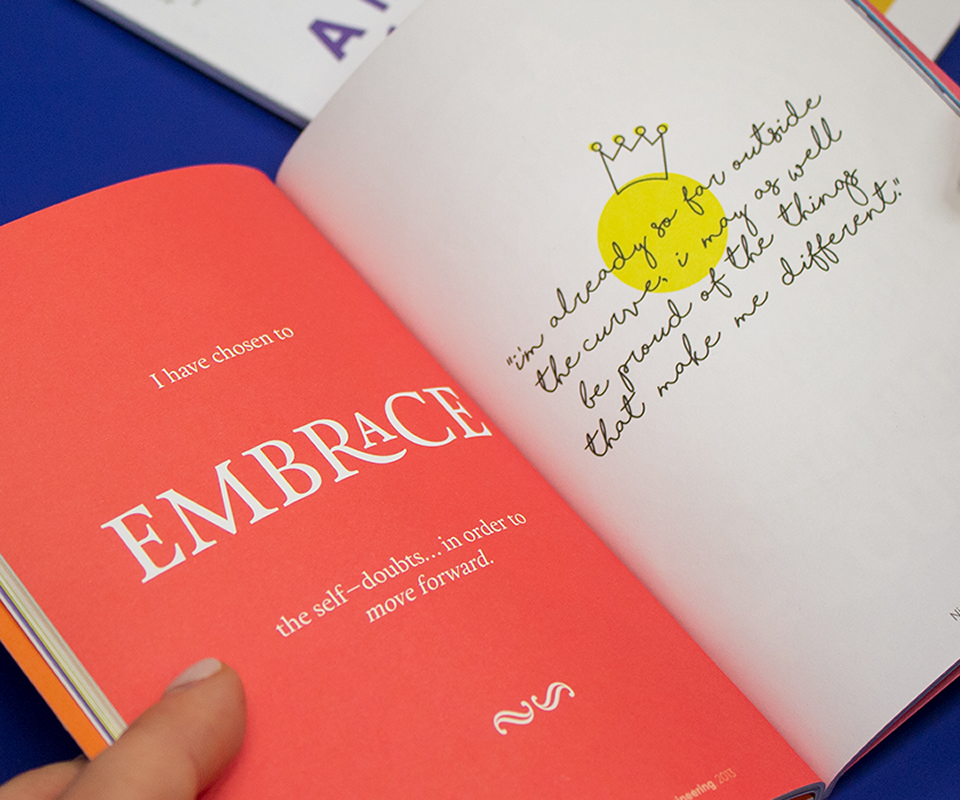 I have chosen to
EMBRACE
the self–doubts... in order to
move forward.
2013
"i'm already so far outside
the curve, i may as well
be proud of the things
that make me different."